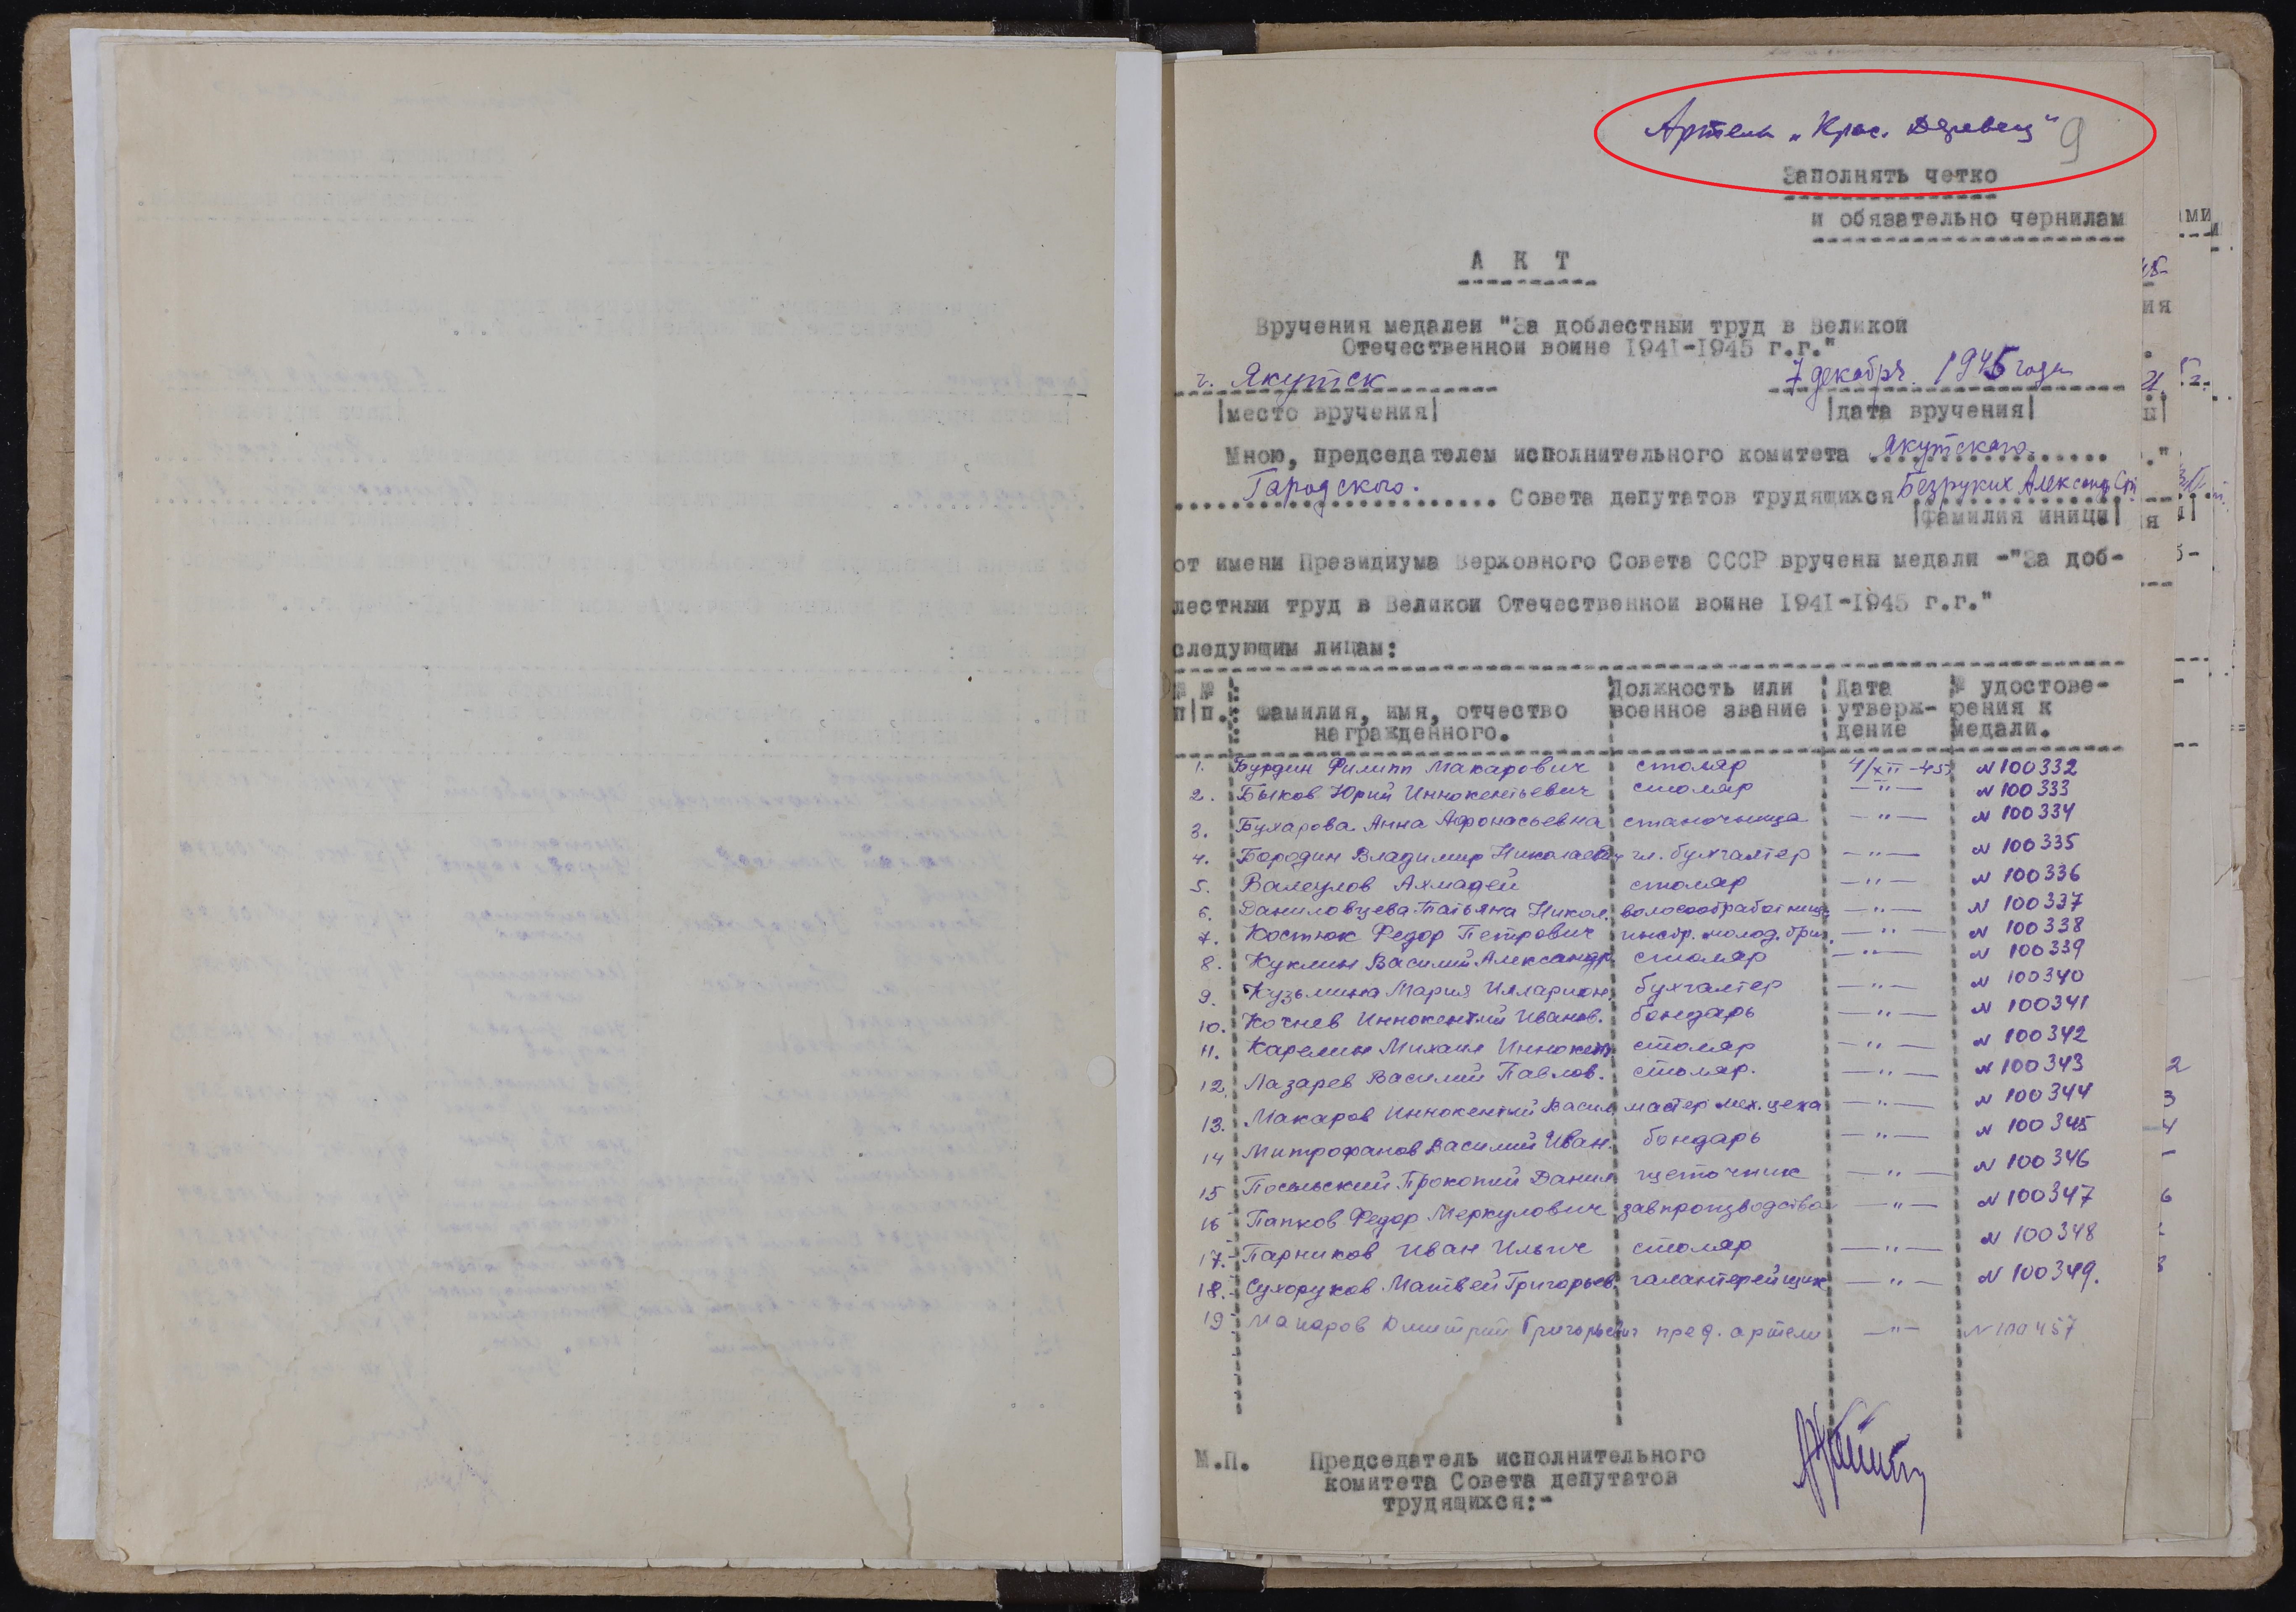 Артель „Крас. Деревец“ 9
Заполнять четко
и обязательно чернилам
А К Т
Вручения медалей "За доблестный труд в Великой
Отечественной войне 1941-1945 г.г."
г. Якутск 7 декабря 1945 года
|место вручения| |дата вручения|
Мною, председателем исполнительного комитета Якутского
Городского. Совета депутатов трудящихся Безруких Александр
|фамилия иници|
от имени Президиума Верховного Совета СССР вручены медали -"За доб-
лестный труд в Великой Отечественной войне 1941-1945 г.г."
следующим лицам:
№ № п|п. Фамилия, имя, отчество награжденного. Должность или военное звание Дата утверж-дение № удостове-рения к медали.
1. Бурдин Филипп Макарович столяр 4/XII-45 N 100332
2. Быков Юрий Иннокентьевич столяр —"— N 100333
3. Бухарова Анна Афонасьевна станочница —"— N 100334
4. Бородин Владимир Николаевич гл. бухгалтер —"— N 100335
5. Валеулов Ахмадей столяр —"— N 100336
6. Даниловцева Татьяна Никол. волосообработница —"— N 100337
7. Костюк Федор Петрович инстр. молод. бриг. —"— N 100338
8. Куклин Василий Александр. столяр —"— N 100339
9. Кузьмина Мария Илларион. бухгалтер —"— N 100340
10. Кочнев Иннокентий Иванов. бондарь —"— N 100341
11. Карелин Михаил Иннокент. столяр —"— N 100342
12. Лазарев Василий Павлов. столяр. —"— N 100343
13. Макаров Иннокентий Васил. мастер мех. цеха —"— N 100344
14 Митрофанов Василий Иван. бондарь —"— N 100345
15 Посельский Прокопий Данил щеточник —"— N 100346
16 Папков Федор Меркулович завпроизводства —"— N 100347
17. Парников Иван Ильич столяр —"— N 100348
18. Сухоруков Матвей Григорьев. галантерейщик —"— N 100349.
19 Макаров Дмитрий Григорьевич пред. артели —"— N 100457
М.П. Председатель исполнительного
комитета Совета депутатов
трудящихся:-